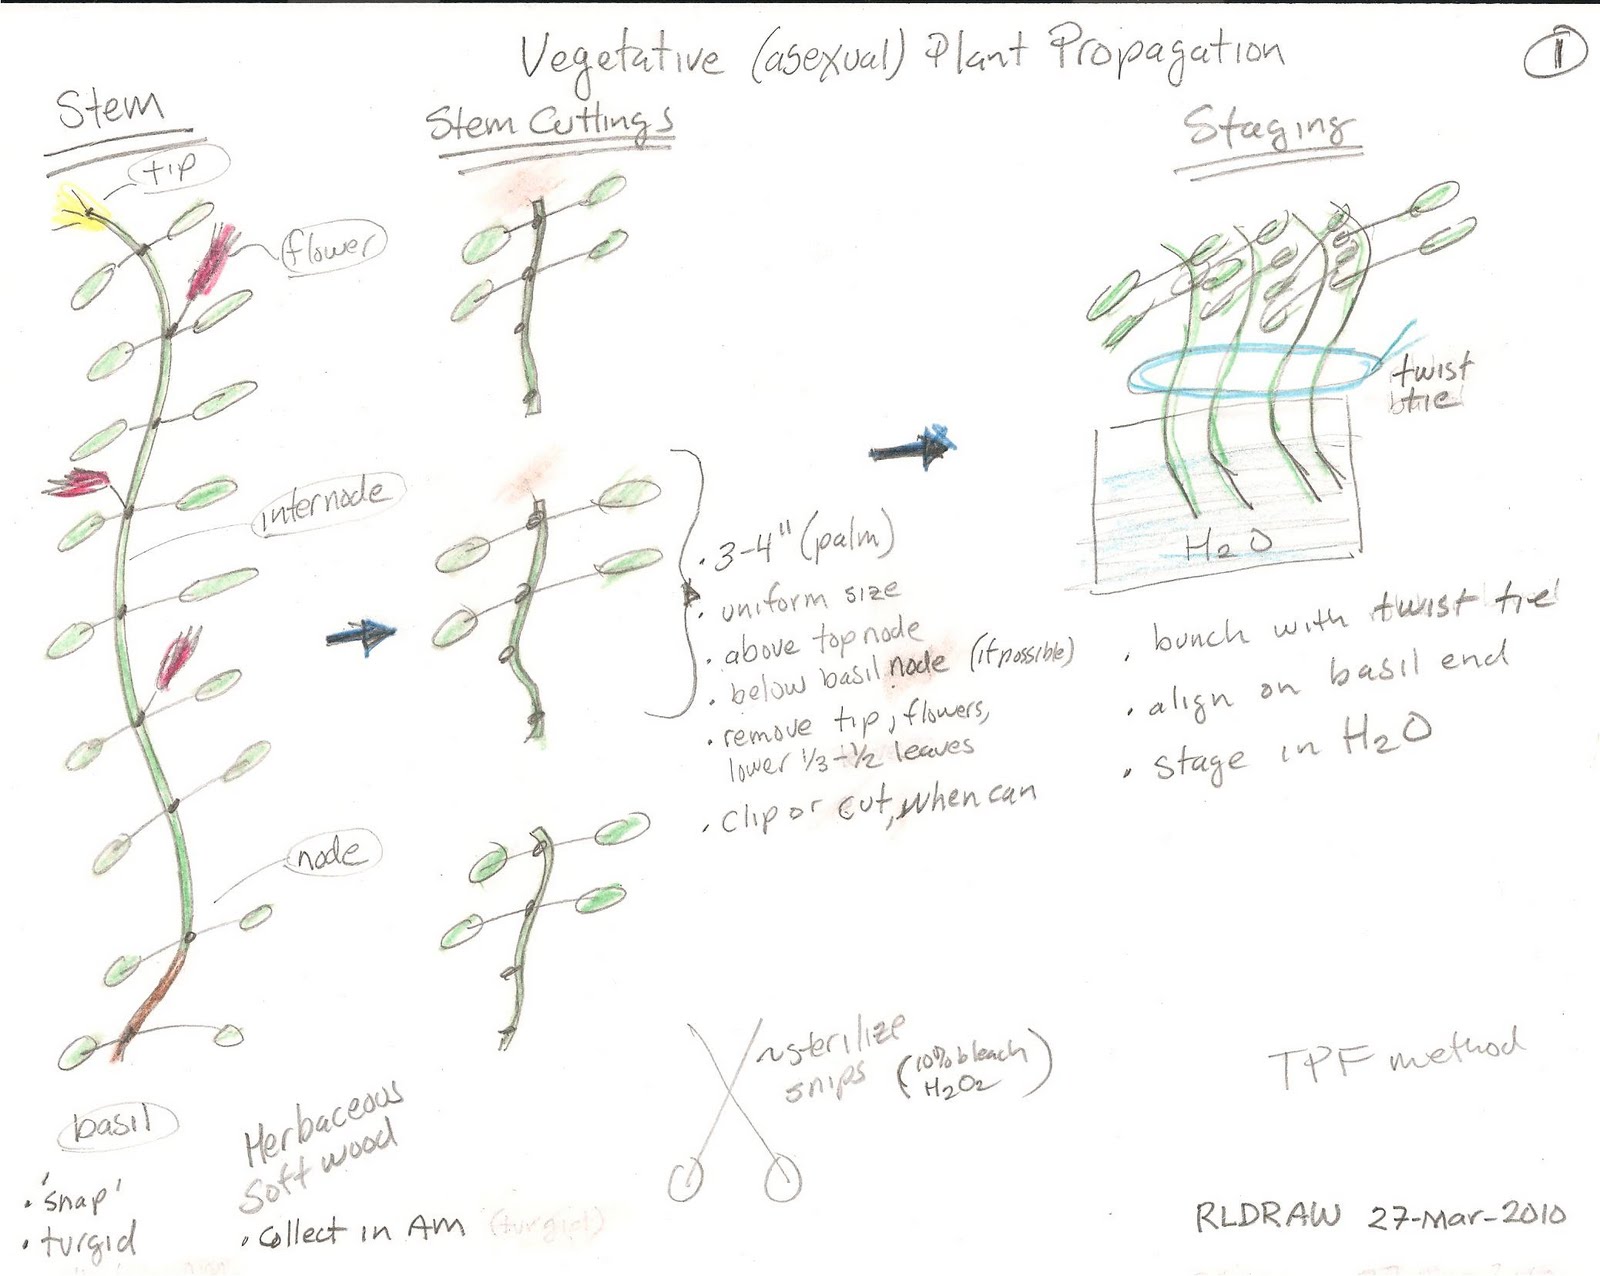 Vegetative (asexual) Plant Propagation
1
Stem
tip
flower
internode
node
basil
• 'snap'
• turgid
Herbaceous
soft wood
• Collect in AM (turgid)
Stem Cuttings
• 3-4" (palm)
• uniform size
• above top node
• below basil node (if possible)
• remove tip, flowers,
lower 1/3 - 1/2 leaves
• clip or cut, when can
~ sterilize
snips (10% bleach
H2O2)
Staging
twist
tie
H2O
• bunch with twist tie
• align on basil end
• stage in H2O
TPF method
RLDRAW 27-Mar-2010